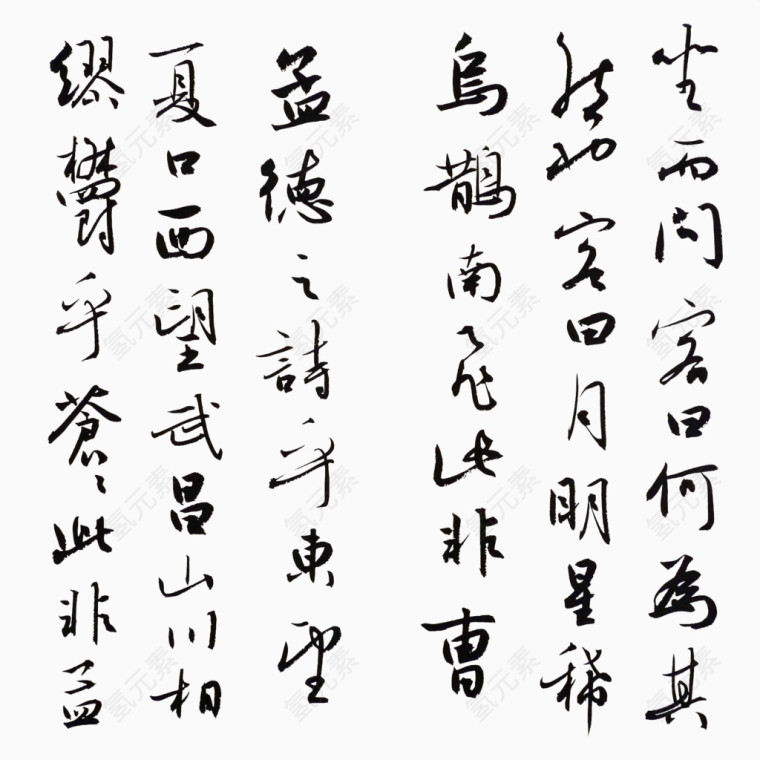 坐而問客曰何為其
然也客曰月明星稀
烏鵲南飛此非曹
孟德之詩乎東望
夏口西望武昌山川相
繆鬱乎蒼々此非孟
氢元素